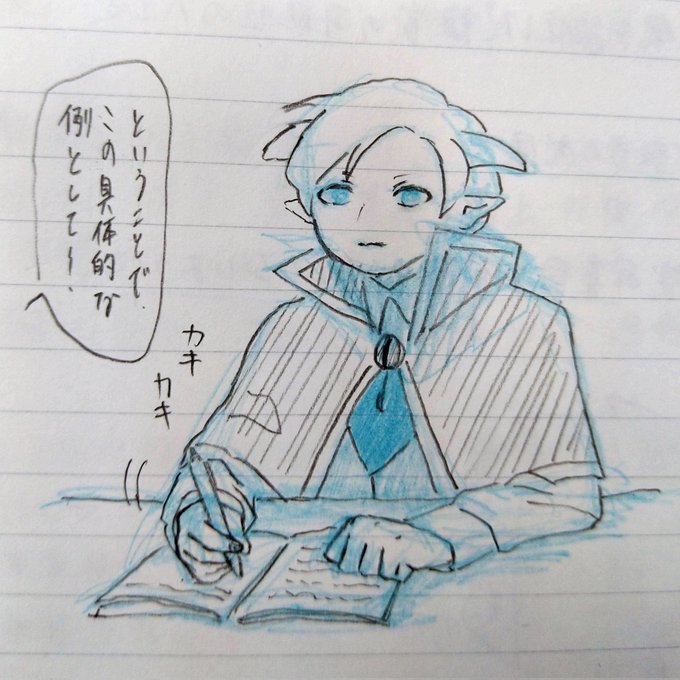 ということで、
この具体的な
例として〜、
カキ
カキ